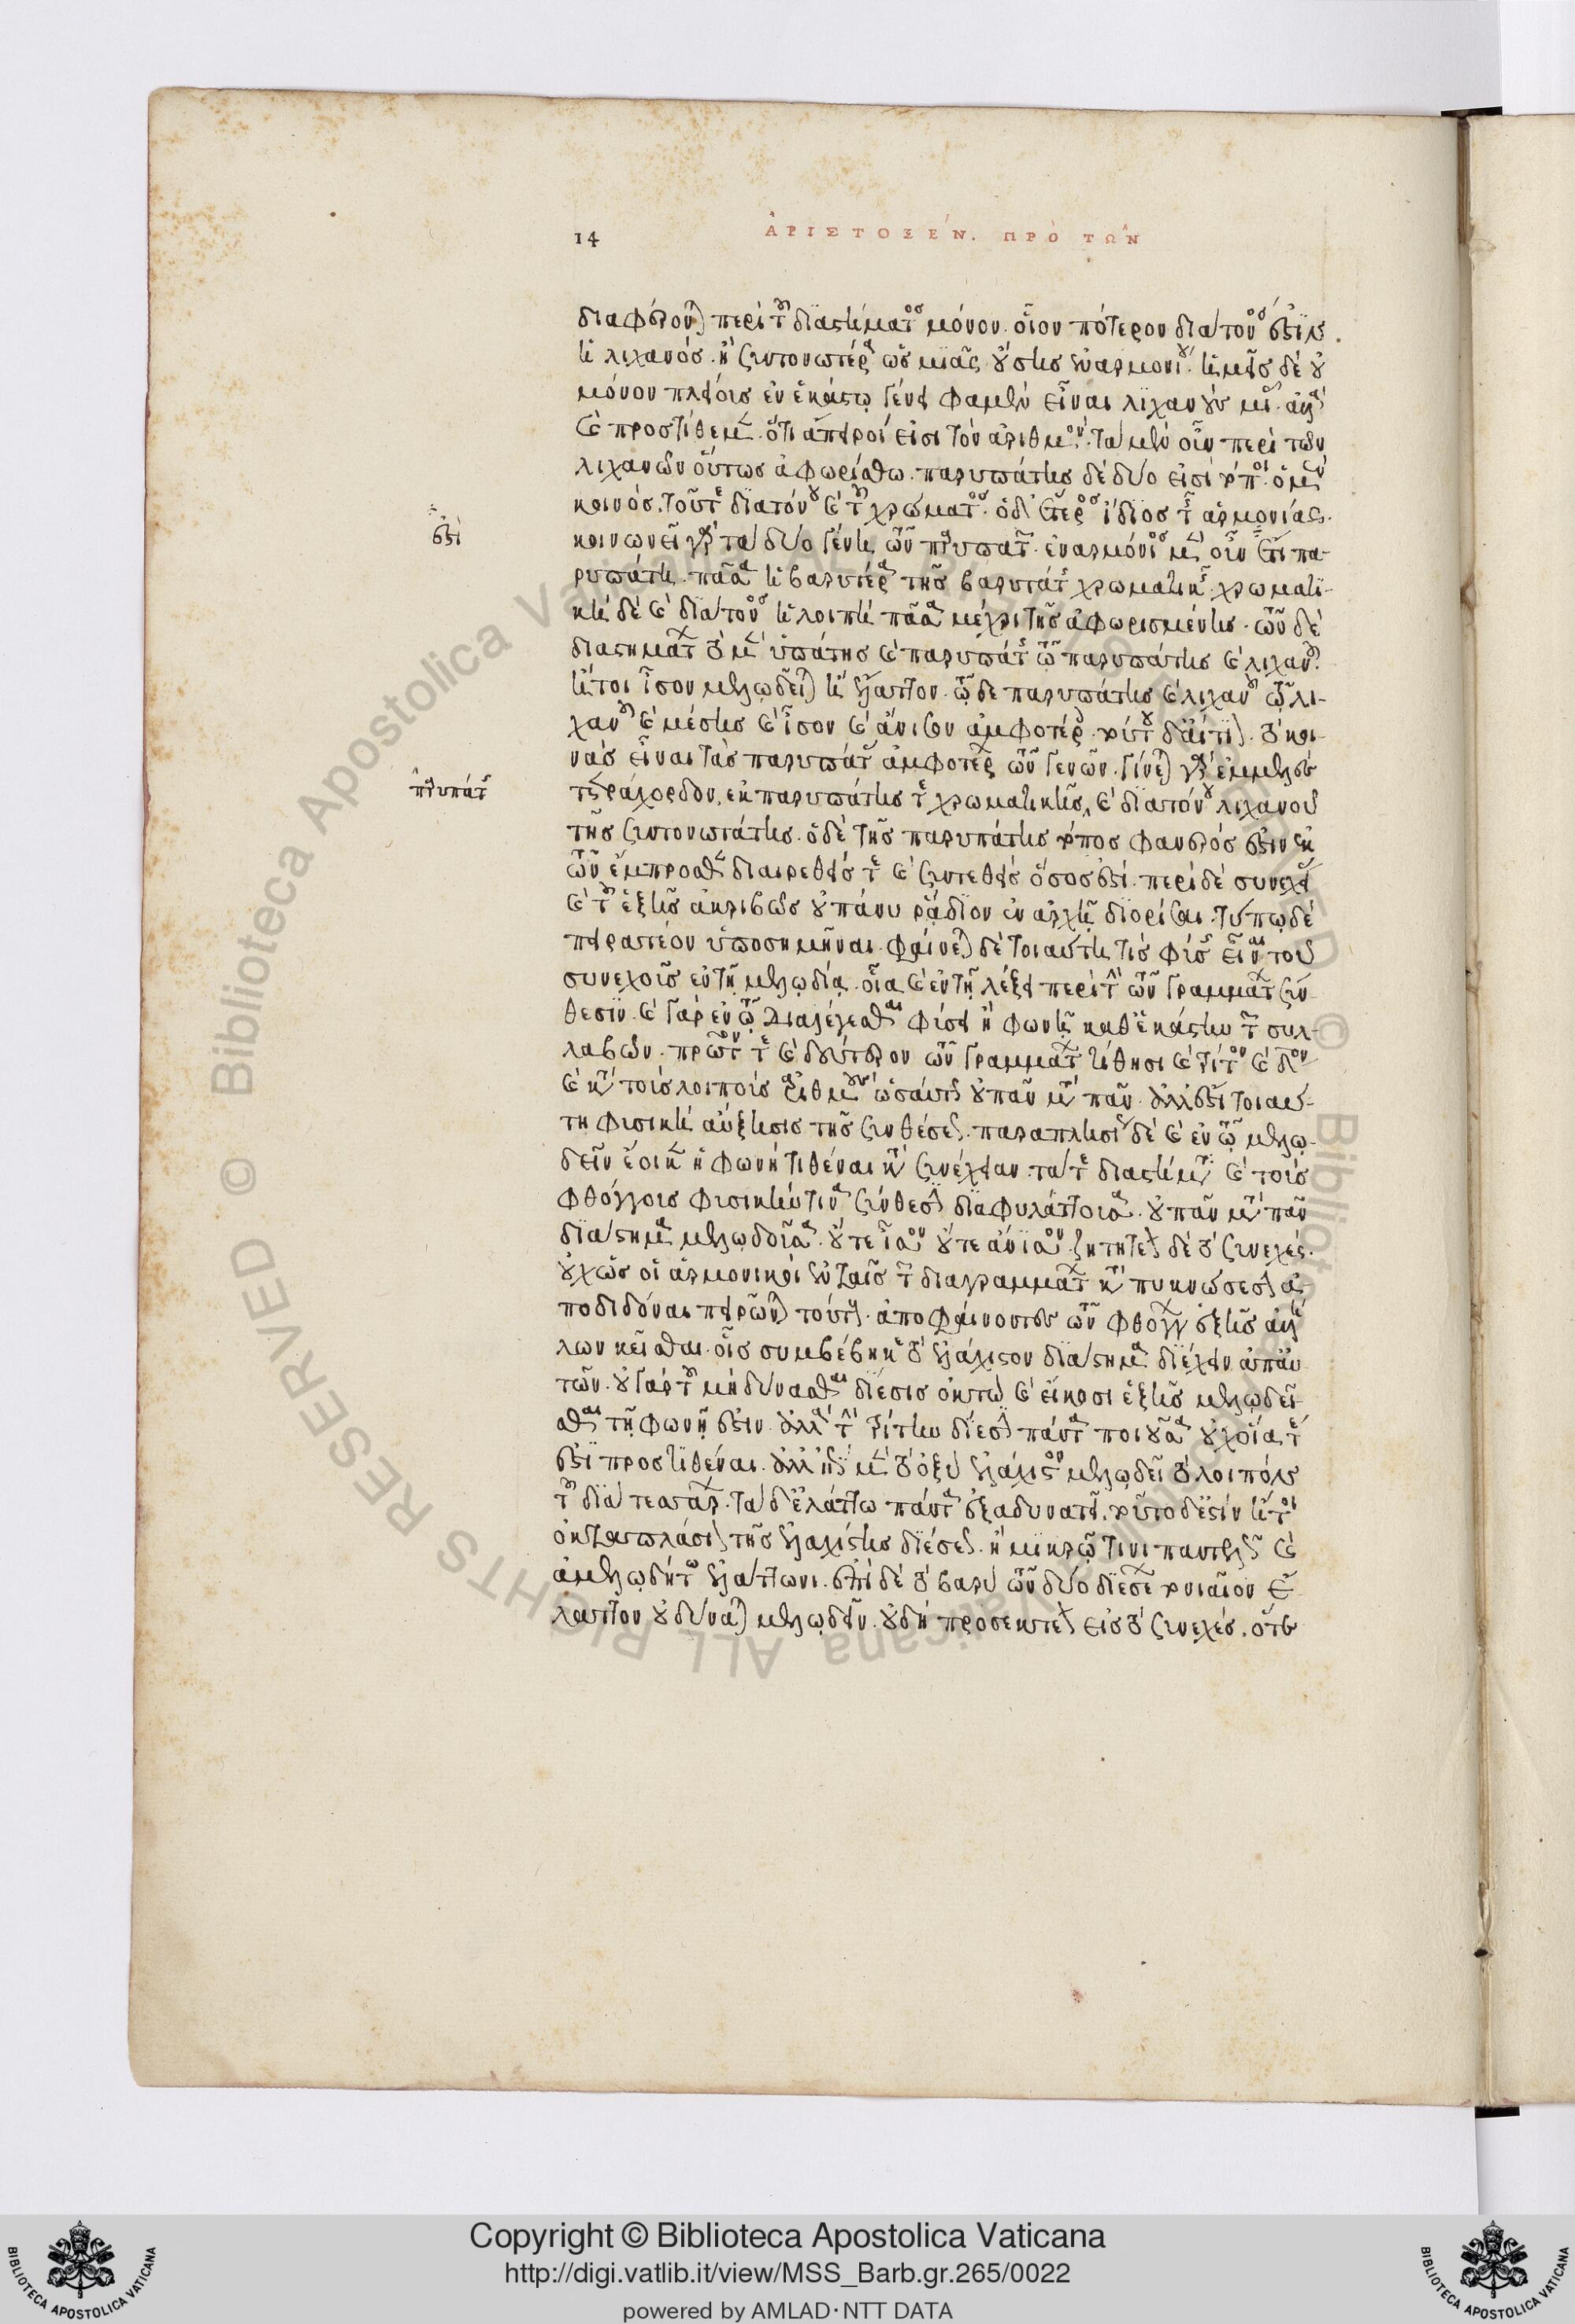 14
ἈΡΙΣΤΟΞΈΝ. ΠΡΟ ΤΩ͂Ν
περὶ διαστήματος μόνον. οἷον πότερον διάτονός ἐστιν
ἢ λιχανός. ἢ συντονωτέρα ὡς μιᾶς οὔσης ἐναρμονίου. ἡμεῖς δὲ οὐ
μόνον πλείους ἐν ἑκάστῳ γένει φαμὲν εἶναι λιχανοὺς μιᾶς. ἀλλὰ
καὶ προστίθεμεν. ὅτι ἄπειροί εἰσι τὸν ἀριθμόν. τὰ μὲν οὖν περὶ τῶν
λιχανῶν οὕτως ἀφωρίσθω. παρυπάτης δὲ δύο εἰσὶ τόποι. ὁ μὲν
κοινός. τοῦ τε διατόνου καὶ τοῦ χρώματος. ὁ δ' ἕτερος ἴδιος τῆς ἁρμονίας.
κοινωνεῖ γὰρ τὰ δύο γένη τῶν παρυπατῶν. ἐναρμόνιος μὲν οὖν ἐστι πα-
ρυπάτη. πᾶσα ἡ βαρυτέρα τῆς βαρυτάτης χρωματικῆς. χρωματι-
κὴ δὲ καὶ διάτονος ἡ λοιπὴ πᾶσα μέχρι τῆς ἀφωρισμένης. τῶν δὲ
διαστημάτων τὸ μὲν ὑπάτης καὶ παρυπάτης τῷ παρυπάτης καὶ λιχανοῦ
ἤτοι ἴσον μελῳδεῖται ἢ ἔλαττον. τὸ δὲ παρυπάτης καὶ λιχανοῦ τῷ λι-
χανοῦ καὶ μέσης καὶ ἴσον καὶ ἄνισον ἀμφοτέρως. τούτου δ' αἴτιον. τὸ κοι-
νὰς εἶναι τὰς παρυπάτας ἀμφοτέρων τῶν γενῶν. γίνεται γὰρ ἐμμελὲς
τετράχορδον, ἐκ παρυπάτης τε χρωματικῆς, καὶ διατόνου λιχανοῦ
τῆς συντονωτάτης. ὁ δὲ τῆς παρυπάτης τόπος φανερός ἐστιν ἐκ
τῶν ἔμπροσθεν διαιρεθείς τε καὶ συντεθεὶς ὅσος ἐστί. περὶ δὲ συνεχείας
καὶ τοῦ ἑξῆς ἀκριβῶς οὐ πάνυ ῥᾴδιον ἐν ἀρχῇ διορίσαι. τύπῳ δὲ
πειρατέον ὑποσημῆναι. φαίνεται δὲ τοιαύτη τις φύσις εἶναι τοῦ
συνεχοῦς ἐν τῇ μελῳδίᾳ. οἵα καὶ ἐν τῇ λέξει περὶ τὴν τῶν γραμμάτων σύν-
θεσιν. καὶ γὰρ ἐν τῷ διαλέγεσθαι φύσει ἡ φωνὴ καθ' ἑκάστην τῶν συλ-
λαβῶν. πρῶτόν τε καὶ δεύτερον τῶν γραμμάτων τίθησι καὶ τρίτον καὶ δον
καὶ κατὰ τοὺς λοιποὺς ἀριθμοὺς ὡσαύτως οὐ πᾶν μετὰ πᾶν. ἀλλ' ἔστι τοιαύ-
τη φυσικὴ αὔξησις τῆς συνθέσεως. παραπλησίως δὲ καὶ ἐν τῷ μελῳ-
δεῖν ἔοικεν ἡ φωνὴ τιθέναι κατὰ συνέχειαν. τά τε διαστήματα καὶ τοὺς
φθόγγους φυσικήν τινα σύνθεσιν διαφυλάττουσα. οὐ πᾶν μετὰ πᾶν
διάστημα μελῳδοῦσα. οὔτε ἴσον οὔτε ἄνισον. ζητητέον δὲ τὸ συνεχές.
οὐχ ὡς οἱ ἁρμονικοὶ ἐν ταῖς τῶν διαγραμμάτων καταπυκνώσεσιν ἀ-
ποδιδόναι πειρῶνται τούτους. ἀποφαίνοντες τῶν φθόγγων ἑξῆς ἀλλή-
λων κεῖσθαι. οἷς συμβέβηκε τὸ ἐλάχιστον διάστημα διέχειν ἀφ' αὑ-
τῶν. οὐ γὰρ τοῦ μὴ δύνασθαι διέσεις ὀκτὼ καὶ εἴκοσι ἑξῆς μελῳδεῖ-
σθαι τῇ φωνῇ ἐστιν. ἀλλὰ τὴν τρίτην δίεσιν πάντα ποιοῦσα οὐχ οἵα τε
ἐστὶ προστιθέναι. ἀλλ' ἐπὶ μὲν τὸ ὀξὺ ἐλάχιστον μελῳδεῖ τὸ λοιπὸν
τοῦ διὰ τεσσάρων. τὰ δ' ἐλάττω πάντα ἐξαδυνατεῖ. τοῦτο δ' ἐστὶν ἤτοι
ὀκταπλάσιον τῆς ἐλαχίστης διέσεως. ἢ μικρῷ τινι παντελῶς καὶ
ἀμελῳδήτῳ ἐλάττονι. ἐπὶ δὲ τὸ βαρὺ τῶν δύο διέσεων τονιαῖον ἔ-
λαττον οὐ δύναται μελῳδεῖν. οὐ δὴ προσεκτέον εἰς τὸ συνεχές. ὅτε
ἐστὶ
παρυπάτης